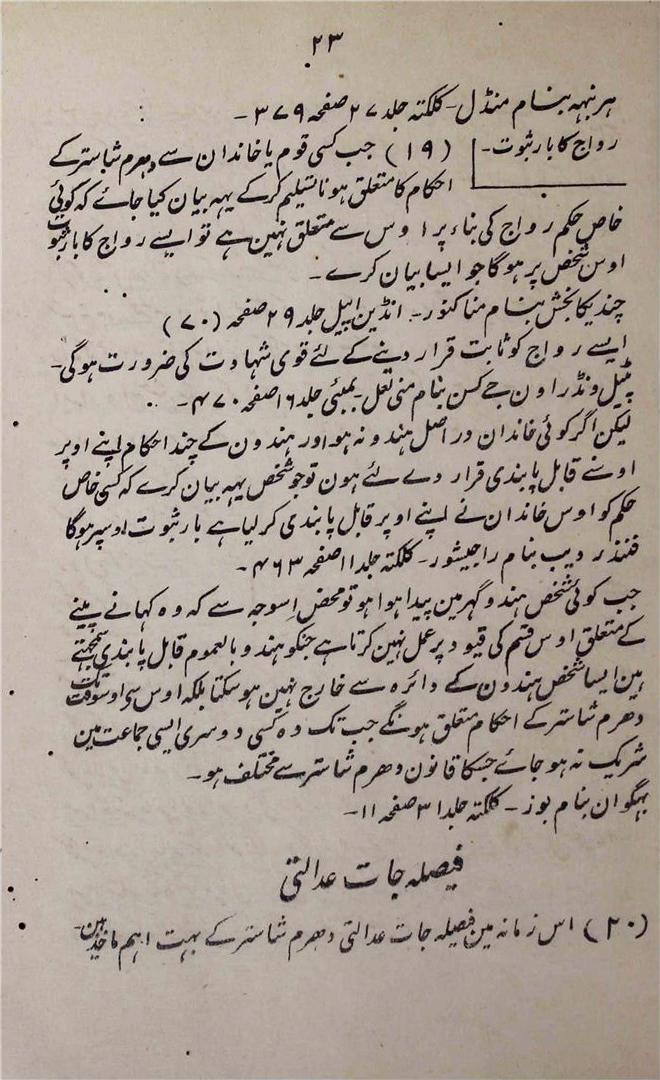 ۲۳
ہرنبہہ بنام منڈل - کلکتہ جلد ۲۷ صفحہ ۳۷۹ -
رواج کا بار ثبوت - (۱۹) جب کسی قوم یا خاندان سے دہرم شاستر کے
احکام کا متعلق ہونا تسلیم کرکے یہہ بیان کیا جائے کہ کوئی
خاص حکم رواج کی بناء پر اوس سے متعلق نہین ہے تو ایسے رواج کا بار ثبوت
اوس شخص پر ہوگا جو ایسا بیان کرے -
چندیکا بخش بنام منا کنور - انڈین اپیل جلد ۲۹ صفحہ (۷۰)
ایسے رواج کو ثابت قرار دینے کے لئے قوی شہادت کی ضرورت ہوگی -
پٹیل ونڈراون جے کسن بنام منی لعل - بمبئی جلد ۱۶ صفحہ ۴۷۰ -
لیکن اگر کوئی خاندان در اصل ہندو نہ ہو اور ہندون کے چند احکام اپنے اوپر
اوسنے قابل پابندی قرار دے لئے ہون تو جو شخص یہہ بیان کرے کہ کسی خاص
حکم کو اوس خاندان نے اپنے اوپر قابل پابندی کرلیا ہے بار ثبوت اوسپر ہوگا
فنندر دیب بنام راجیشور - کلکتہ جلد ۱۱ صفحہ ۴۶۳ -
جب کوئی شخص ہندو گہر مین پیدا ہوا ہو تو محض اسوجہ سے کہ وہ کہانے پینے
کے متعلق اوس قسم کی قیود پر عمل نہین کرتا ہے جنکو ہندو بالعموم قابل پابندی سمجہتے
ہین ایسا شخص ہندون کے دائرہ سے خارج نہین ہوسکتا بلکہ اوس سی اوسوقت تک
دھرم شاستر کے احکام متعلق ہونگے جب تک وہ کسی دوسری ایسی جماعت مین
شریک نہ ہو جائے جسکا قانون دھرم شاستر سے مختلف ہو -
بہگوان بنام بوز - کلکتہ جلد ۳۱ صفحہ ۱۱ -
فیصلہ جات عدالتی
(۲۰) اس زمانہ مین فیصلہ جات عدالتی دھرم شاستر کے بہت اہم ماخذ ہین -